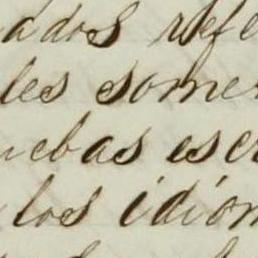 ados refe
les somer
uebas escr
los idiom